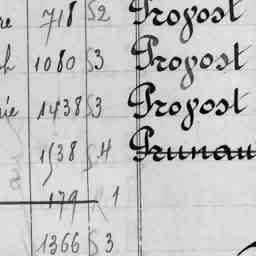 re 718 S2 Propost
h 1080 S3 Propost
rie 1438 S3 Propost
1538 S.4 Prunau
179 R 1
1366 S 3